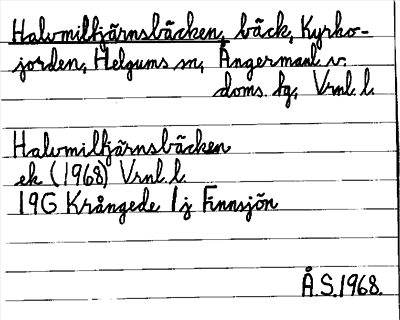 Halvmiltjärnsbäcken, bäck, Kyrko-
jorden, Helgums sn, Ångermanl. v.
doms. fg, Vrnl. l.
Halvmiltjärnsbäcken
ek (1968) Vrnl. l.
19G Krångede 1j Finnsjön
Å.S. 1968.